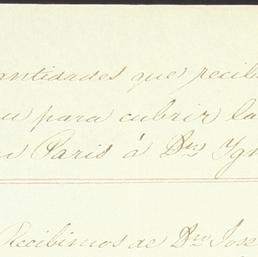 antidades que recib
para cubrir la
Paris á Dn Ygn
Recibimos de Dn Jose